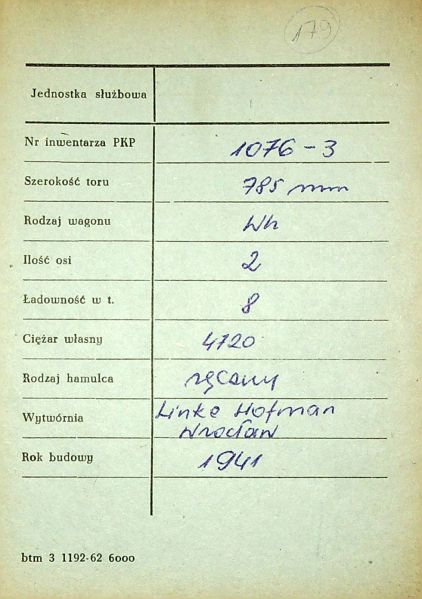 179
Jednostka służbowa
Nr inwentarza PKP 1076-3
Szerokość toru 785 mm
Rodzaj wagonu Wh
Ilość osi 2
Ładowność w t. 8
Ciężar własny 4120
Rodzaj hamulca ręczny
Wytwórnia Linke Hofman
Wrocław
Rok budowy 1941
btm 3 1192-62 6000